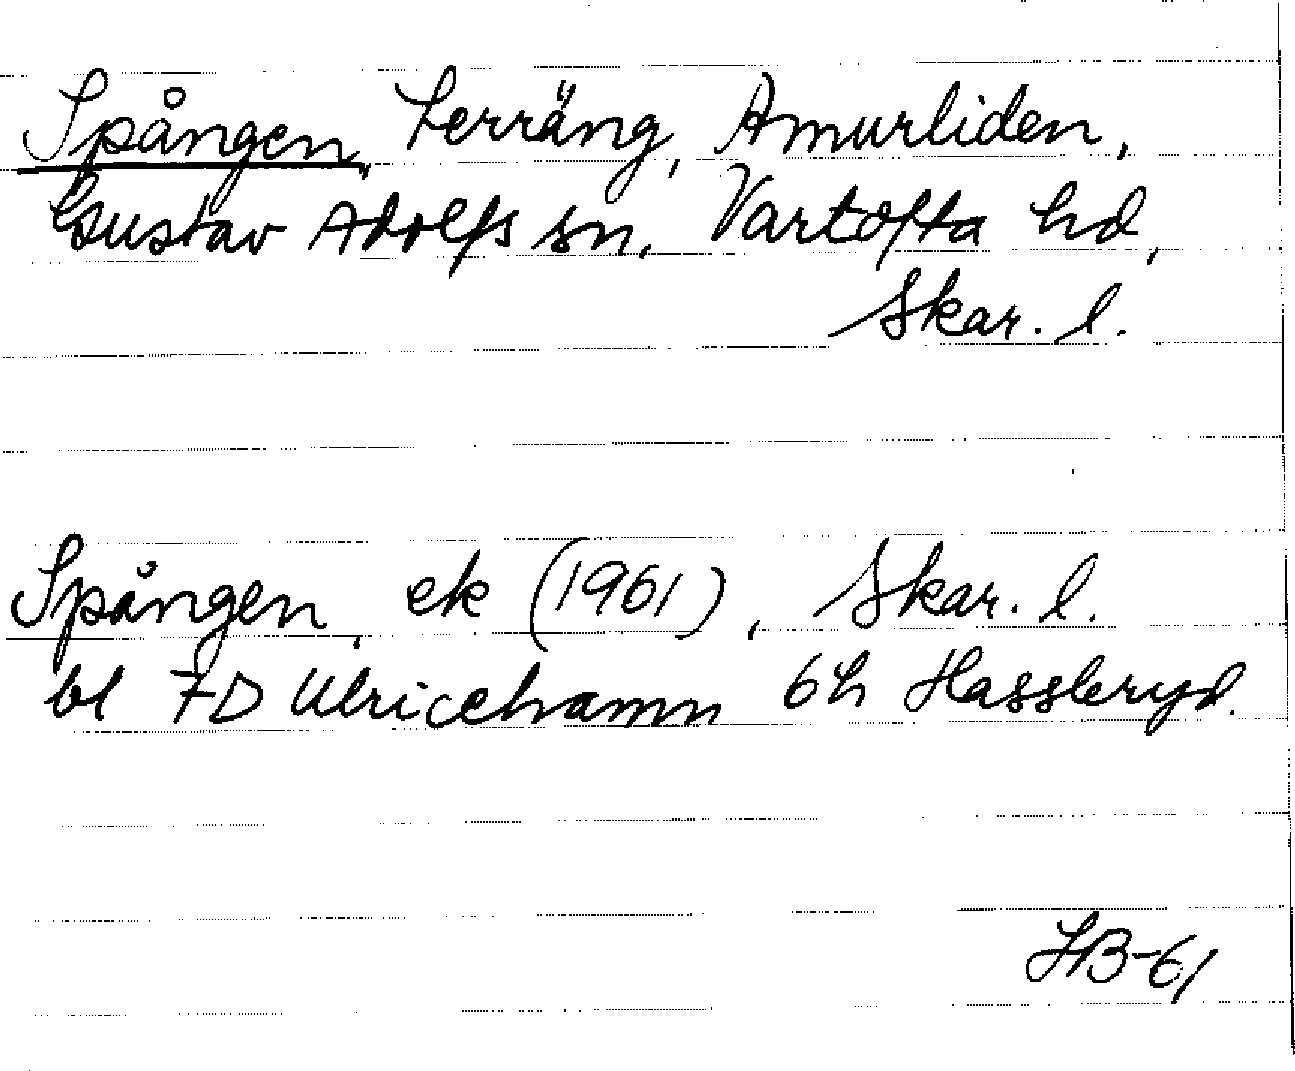 Spången, terräng, Amurliden,
Gustav Adolfs sn, Vartofta hd,
Skar. l.
Spången, ek (1961), Skar. l.
bl 7D Ulricehamn 6h Hassleryd.
HB-61